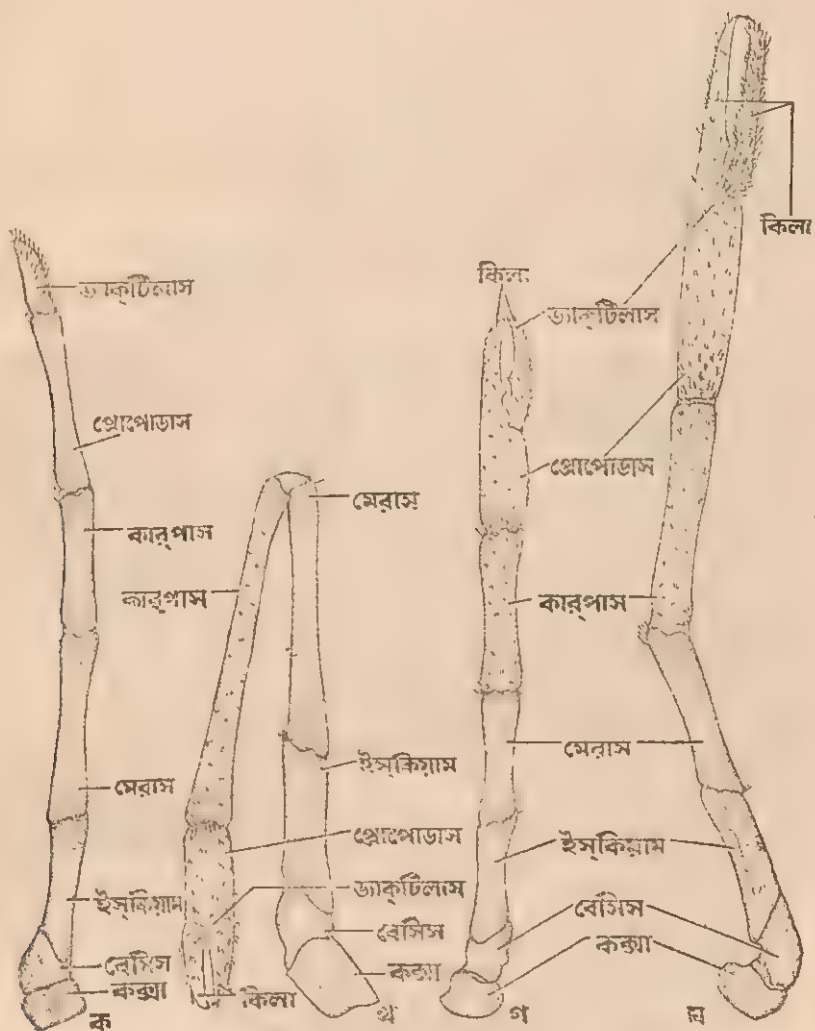 কিলা
ড্যাক্‌টিলাস
কিলা
ড্যাক্‌টিলাস
প্রোপোডাস
প্রোপোডাস
মেরাস
কার্‌পাস
কার্‌পাস
কার্‌পাস
মেরাস
ইস্‌কিয়াম
মেরাস
প্রোপোডাস
ইস্‌কিয়াম
ড্যাক্‌টিলাস
ইস্‌কিয়াম
বেসিস
বেসিস
কক্সা
বেসিস
কক্সা
কক্সা
কিলা
ক
খ
গ
ঘ